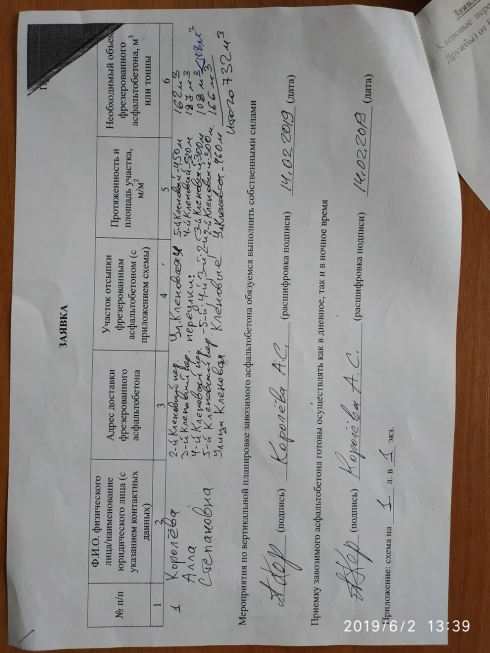 ЗАЯВКА
№ п/п
Ф.И.О. физического
лица/наименование
юридического лица (с
указанием контактных
данных)
Адрес доставки
фрезерованного
асфальтобетона
Участок отсыпки
фрезерованным
асфальтобетоном (с
приложением схемы)
Протяженность и
площадь участка,
м/м²
Необходимый объем
фрезерованного
асфальтобетона, м³
или тонны
1
2
3
4
5
6
1
Королёва
Алла
Степановна
2-й Кленовый пер.
3-й Кленовый пер.
4-й Кленовый пер.
5-й Кленовый пер.
Улица Кленовая
Ул. Кленовая и
переулки:
5-й 4-й 3-й 2-й
Кленовые!
5-й Кленовый-450м
4-й Кленовый-520м
3-й Кленовый-300м
2-й Кленовый-300м
Ул. Кленовая-460м
162 м³
187 м³
108 м³
108 м³
166 м³
Итого 732 м³
Мероприятия по вертикальной планировке завозимого асфальтобетона обязуемся выполнить собственными силами
(подпись) Королёва А.С. (расшифровка подписи) 14.02.2019 (дата)
Приемку завозимого асфальтобетона готовы осуществлять как в дневное, так и в ночное время
(подпись) Королёва А.С. (расшифровка подписи) 14.02.2019 (дата)
Приложение: схема на 1 л. в 1 экз.
2019/6/2 13:39